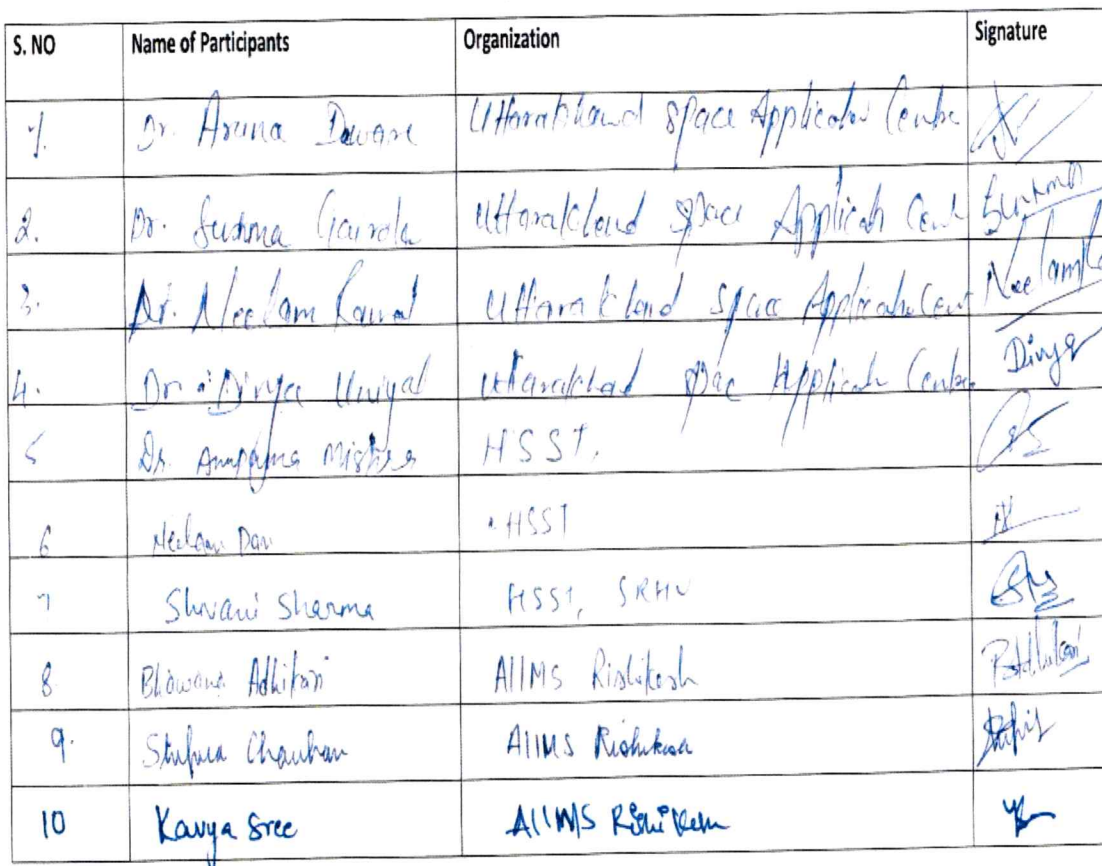 S. NO Name of Participants Organization Signature
1. Dr. Aruna Uttarakhand Space Application Centre
2. Dr. Sushma Gairola Uttarakhand Space Applicatn Cent
3. Dr. Neelam Rawat Uttarakhand Space Applicatn Cent Neelam
4. Dr. Divya Uniyal Uttarakhand Space Applicatn Centre Divya
5 Dr. Anupama Mishra HSST,
6 Neelam HSST
7 Shivani Sharma HSST, SRHU
8 Bhawana Adhikari AIIMS Rishikesh
9. Chauhan AIIMS Rishikesh
10 Kavya Sree AIIMS Rishikesh